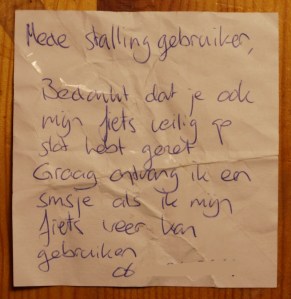 Mede stalling gebruiker,
Bedankt dat je ook
mijn fiets veilig op
slot hebt gezet
Graag ontvang ik een
smsje als ik mijn
fiets weer kan
gebruiken
06